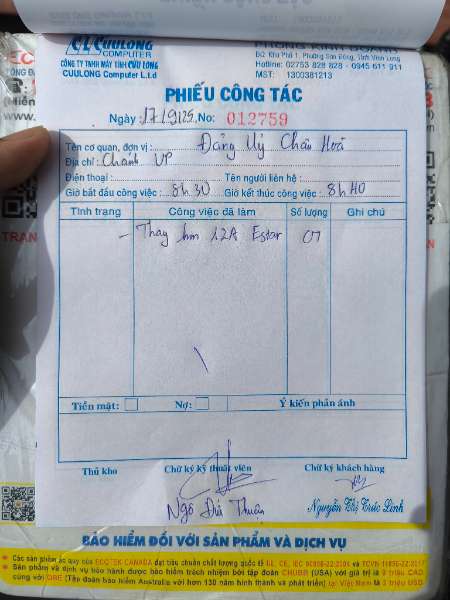 CUULONG
COMPUTER
CÔNG TY TNHH MÁY TÍNH CỬU LONG
CUULONG Computer L.t.d
PHÒNG KINH DOANH
Đ/C Khu Phố 1, Phường Sơn Đông, Tỉnh Vĩnh Long
Hotline: 02753 828 828 - 0945 611 911
MST: 1300381213
PHIẾU CÔNG TÁC
Ngày: 17/9/25 No: 012759
Tên cơ quan, đơn vị: Đảng Uỷ Châu Hoà
Địa chỉ: Chánh VP
Điện thoại: Tên người liên hệ:
Giờ bắt đầu công việc: 8h30 Giờ kết thúc công việc: 8h40
Tình trạng Công việc đã làm Số lượng Ghi chú
- Thay hm 12A Estar 01
Tiền mặt: Nợ: Ý kiến phản ánh
Thủ kho Chữ ký kỹ thuật viên Chữ ký khách hàng
Ngô Đức Thuận Nguyễn Thị Trúc Linh
BẢO HIỂM ĐỐI VỚI SẢN PHẨM VÀ DỊCH VỤ
Các sản phẩm ắc quy của ECCTEK CANADA đạt tiêu chuẩn chất lượng quốc tế
Sản phẩm và dịch vụ bảo hành được bảo hiểm trách nhiệm bởi tập đoàn CHUBB (USA) với giá trị là
cùng với QBE (Tập đoàn bảo hiểm Australia với hơn 130 năm hình thành và phát triển) tại Việt Nam là